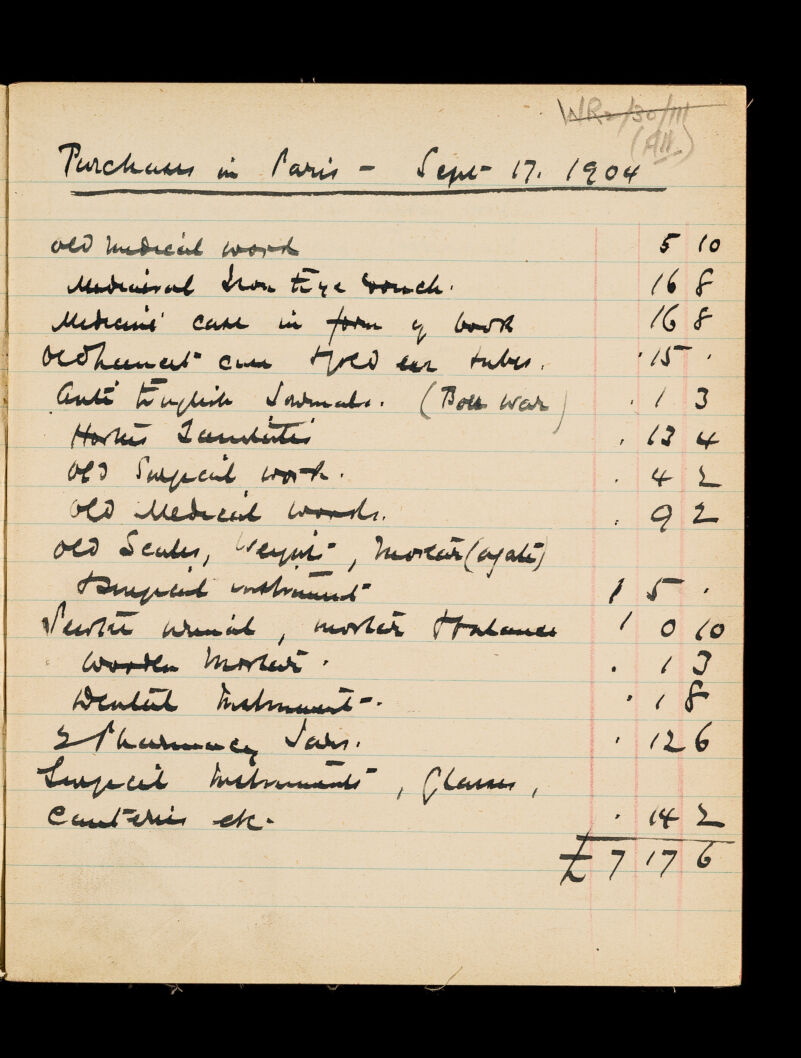 WR2/30/111
(All.)
Purchases in Paris - Sept 17. 1904
Old Medical work 5 10
Mediaeval Iron Eye 16 8
Medicine case in form of book 16 8
Old case & gold ear tubes. . 15 .
Anti English Journals. (Boer War) . 1 3
. 13 4
Old Surgical work. . 4 2
Old Medical works. . 9 2
Old Scales, Weights, Mortar (agate)
& Surgical instrument 1 5 .
, mortar & balance 1 0 10
Wooden Mortar. . 1 3
Dental Instruments. . 1 8
2 Pharmacy Jars. . 12 6
Surgical Instruments, Glasses,
Cauteries etc. . 14 2
£ 7 17 6